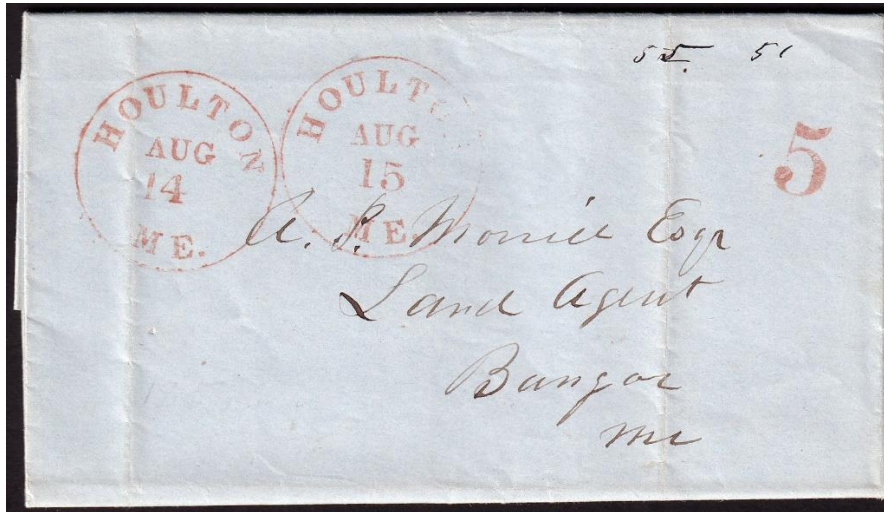 55. 51
HOULTON
AUG
14
ME.
HOULTON
AUG
15
ME.
5
A. P. Morrill Esqr
Land Agent
Bangor
Me